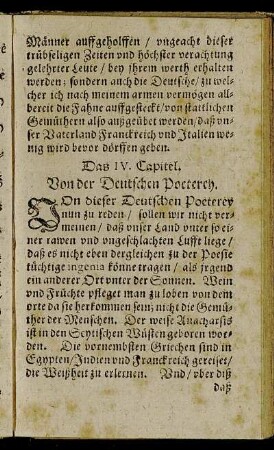 Männer auffgeholffen / vngeacht dieser
trübseligen Zeiten vnd höchster verachtung
gelehrter Leute / bey jhrem werth erhalten
werden: sondern auch die Deutsche / zu wel-
cher ich nach meinem armen vermögen all-
bereit die Fahne auffgesteckt / von stattlichen
Gemüthern also außgeübet werden / daß vn-
ser Vaterland Franckreich vnd Italien we-
nig wird bevor dörffen geben.
Das IV. Capitel.
Von der Deutschen Poeterey.
VOn dieser Deutschen Poeterey
nun zu reden / sollen wir nicht ver-
meinen / daß vnser Land vnter so ei-
ner rawen vnd vngeschlachten Lufft liege /
daß es nicht eben dergleichen zu der Poesie
tüchtige ingenia könne tragen / als jrgend
ein anderer Ort vnter der Sonnen. Wein
vnd Früchte pfleget man zu loben von dem
orte da sie herkommen sein; nicht die Gemü-
ther der Menschen. Der weise Anacharsis
ist in den Scytischen Wüsten geboren wor-
den. Die vornembsten Griechen sind in
Egypten / Indien vnd Franckreich gereiset /
die Weißheit zu erlernen. Vnd / vber diß
daß